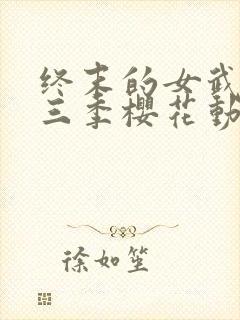 终末的女武
三季樱花动
徐如笙